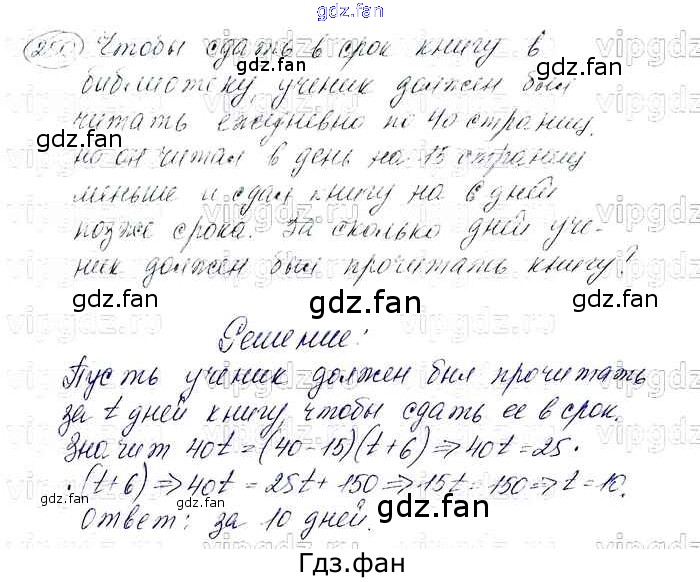 гдз.фан
Чтобы сдать в срок книгу в
библиотеку, ученик должен был
читать ежедневно по 40 страниц,
но он читал в день на 15 страниц
меньше и сдал книгу на 6 дней
позже срока. За сколько дней уче-
ник должен был прочитать книгу?
Решение:
Пусть ученик должен был прочитать
за t дней книгу, чтобы сдать её в срок.
Значит 40t = (40-15)(t+6) ⇒ 40t = 25 ·
· (t+6) ⇒ 40t = 25t + 150 ⇒ 15t = 150 ⇒ t = 10.
Ответ: за 10 дней.
gdz.fan
Гдз.фан